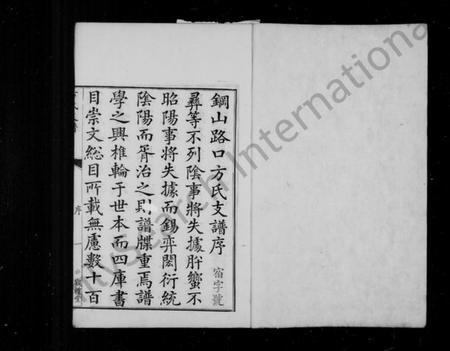 鋼山路口方氏支譜序 宿字號
彞等不列陰事將失據肸蠁不
昭陽事將失據而錫弈閎衍統
陰陽而胥治之則譜牒重焉譜
學之興椎輪于世本而四庫書
目崇文總目所載無慮數十百
序 一